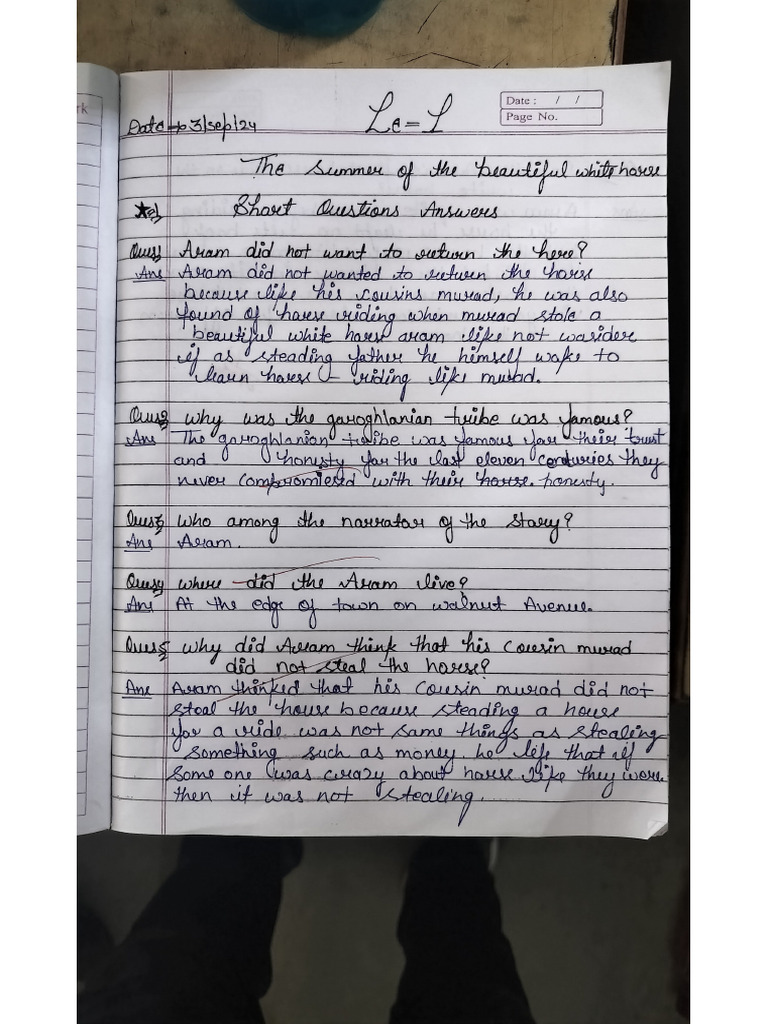 rk
Date : / /
Page No.
Date → 3/sep/24
Le=1
The Summer of the beautiful white horse
Short Questions Answers
Ques1 Aram did not want to return the here?
Ans Aram did not wanted to return the horse
because like his cousins murad, he was also
found of horse riding when murad stole a
beautiful white horse aram like not
if as steading father he himself to
learn horse - riding like murad.
Ques2 why was the garoghlanian tribe was famous?
Ans The garoghlanian tribe was famous for their trust
and honesty for the last eleven centuries they
never compromiesed with their horse. honesty.
Ques3 who among the narrator of the story?
Ans Aram.
Ques4 where did the Aram live?
Ans At the edge of town on walnut Avenue.
Ques5 why did Aram think that his cousin murad
did not steal the horse?
Ans Aram thinked that his cousin murad did not
steal the house because steading a house
for a ride was not same things as stealing
something such as money. he life that if
some one was crazy about horse like they were
then it was not stealing.